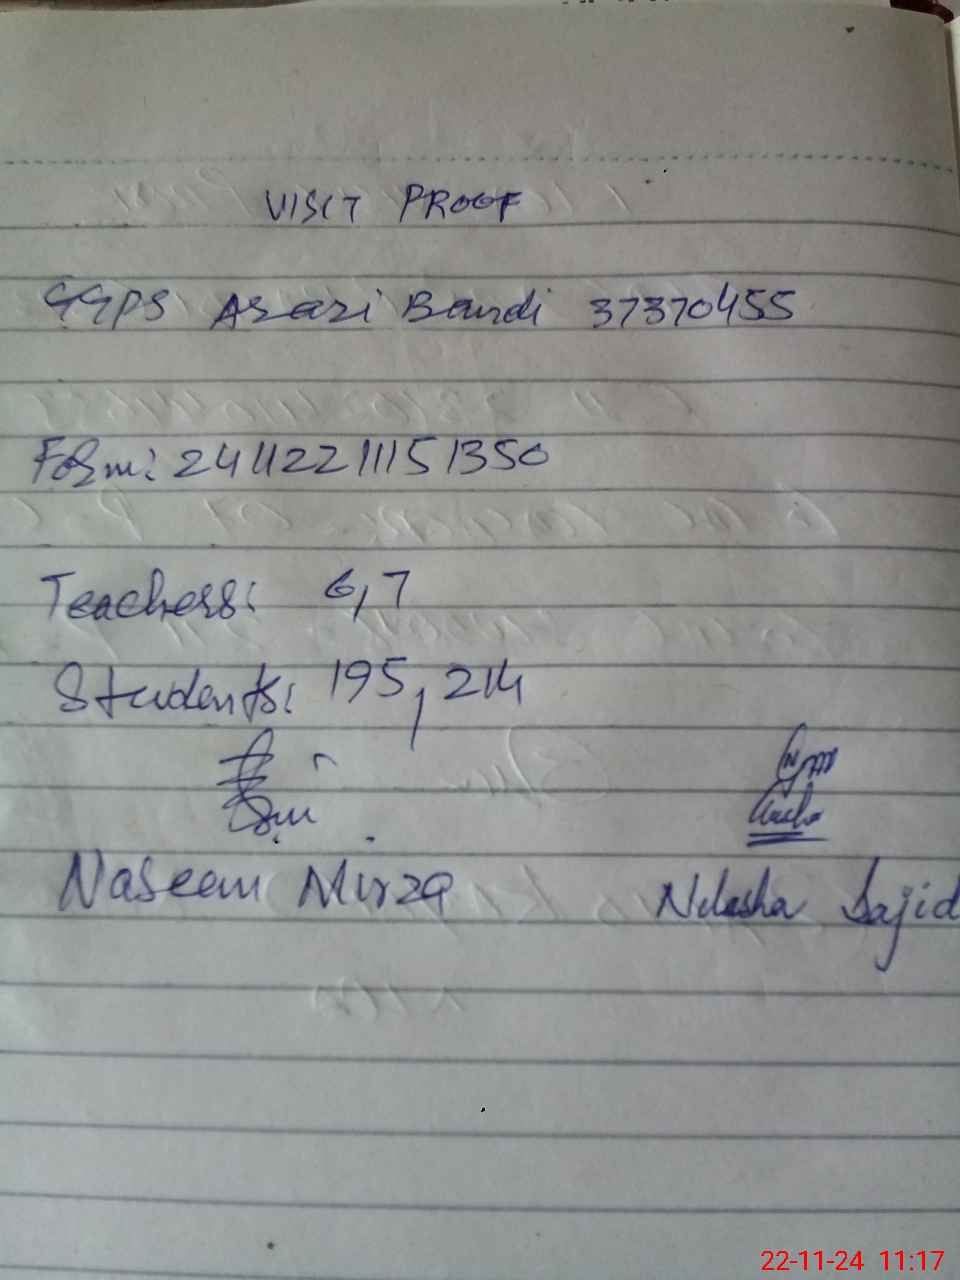 VISIT PROOF
GGPS Arazi Bandi 37370455
Form: 24112211151350
Teachers: 6,7
Students: 195, 214
Naseem Mirza Nelasha Sajid
22-11-24 11:17